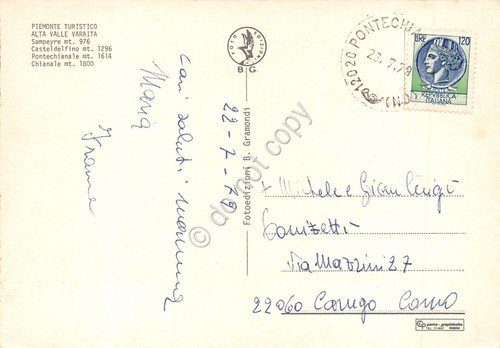 PIEMONTE TURISTICO
ALTA VALLE VARAITA
Sampeyre mt. 976
Casteldelfino mt. 1296
Pontechianale mt. 1614
Chianale mt. 1800
FOTO EDIZIONI
B G
12020 PONTECHIA
23.7.79
(CN)
LIRE 120
REPUBBLICA
ITALIANA
22-7-79
Cari saluti mamma
Maria
Fotoedizioni B. Gramondi
do not copy
Michele e Gian Luigi
Donizetti
Via Mazzini 27
22060 Carugo Como